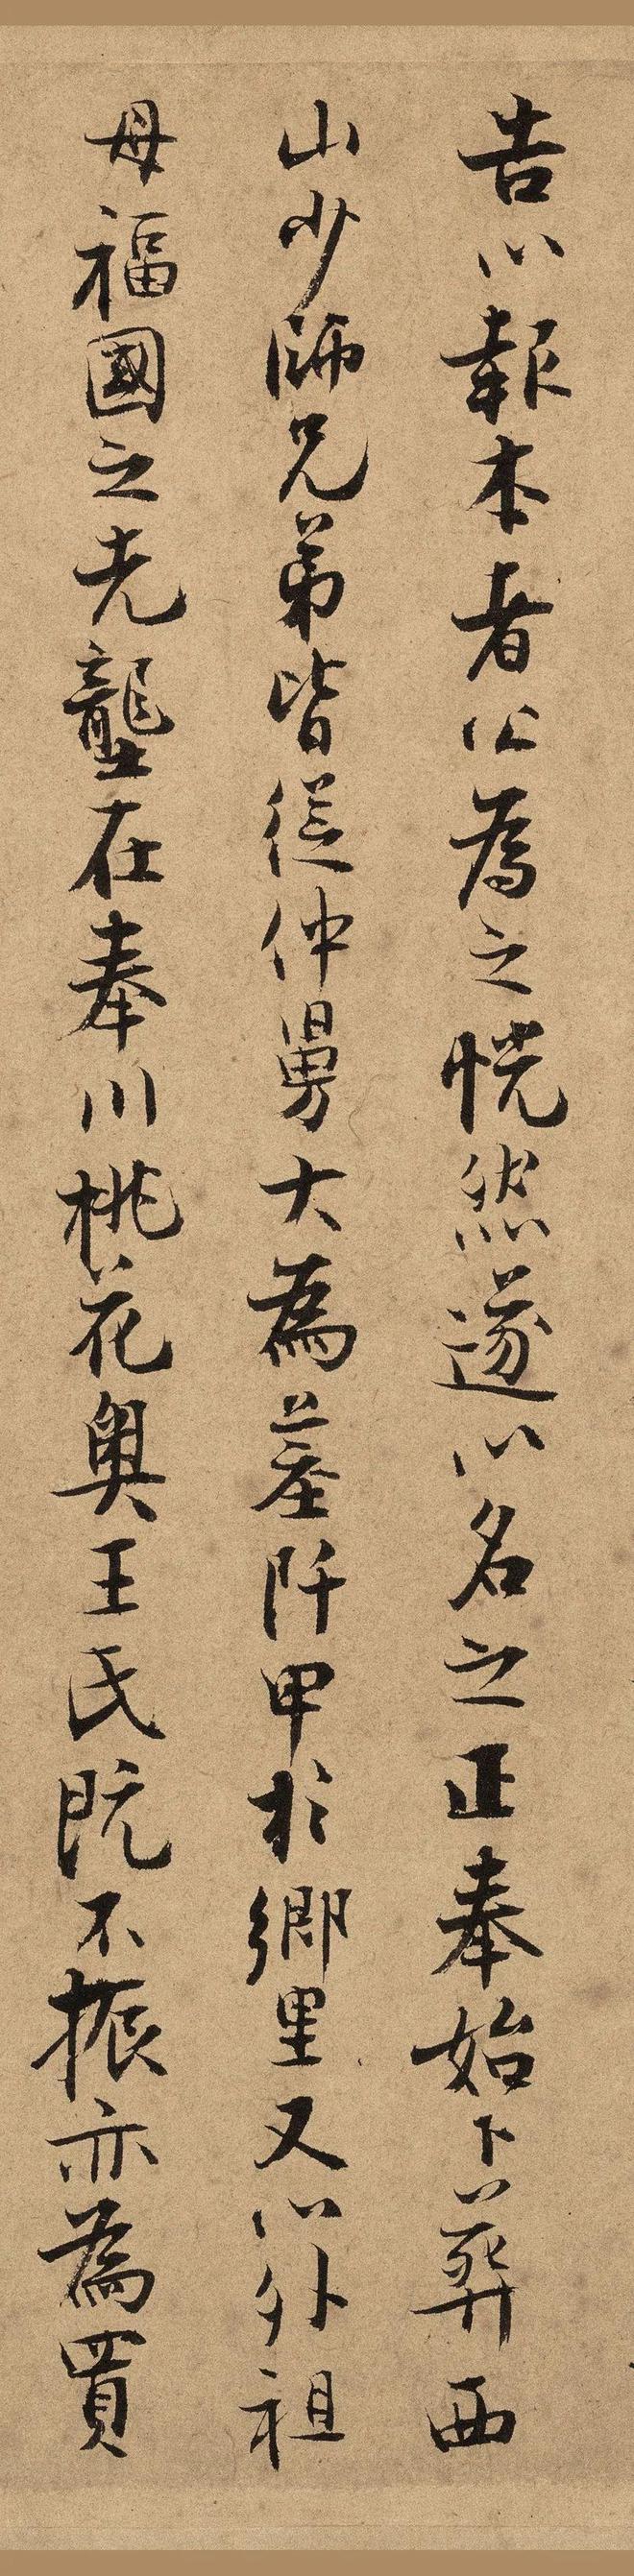 告以報本者公為之恍然遂以名之正奉始卜葬西
山少師兄弟皆從仲舅大為墓阡甲於鄉里又以外祖
母福國之先壟在奉川桃花奧王氏既不振亦為買